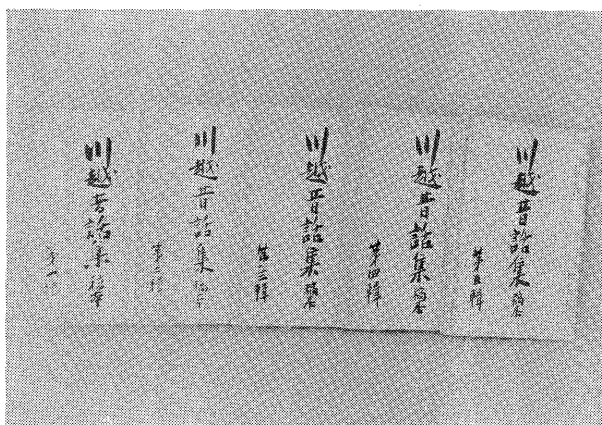 川越昔話集 稿本
第五輯
川越昔話集 稿本
第四輯
川越昔話集 稿本
第三輯
川越昔話集 稿本
第二輯
川越昔話集 稿本
第一輯